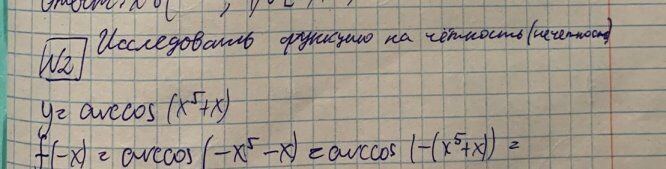 N2 Исследовать функцию на чётность (нечетность)
y = arccos (x⁵+x)
f(-x) = arccos (-x⁵ -x) = arccos (-(x⁵+x)) =